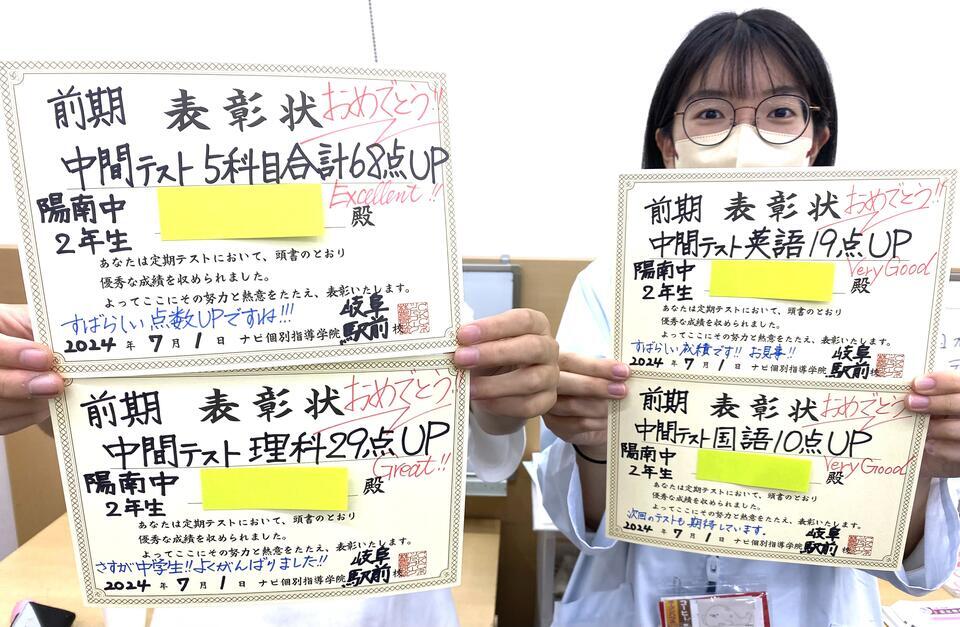 前期 表彰状 おめでとう!!
中間テスト 5科目合計68点UP
Excellent!!
陽南中
2年生
殿
あなたは定期テストにおいて、頭書のとおり
優秀な成績を収められました。
よってここにその努力と熱意をたたえ、表彰いたします。
すばらしい点数UPですね!!!
2024年 7月 1日 ナビ個別指導学院 岐阜駅前校
前期 表彰状 おめでとう!!
中間テスト 理科29点UP
Great!!
陽南中
2年生
殿
あなたは定期テストにおいて、頭書のとおり
優秀な成績を収められました。
よってここにその努力と熱意をたたえ、表彰いたします。
さすが中学生!!よくがんばりました!!
2024年 7月 1日 ナビ個別指導学院 岐阜駅前校
前期 表彰状 おめでとう!!
中間テスト 英語19点UP
Very Good
陽南中
2年生
殿
あなたは定期テストにおいて、頭書のとおり
優秀な成績を収められました。
よってここにその努力と熱意をたたえ、表彰いたします。
すばらしい成績です!! お見事!!
2024年 7月 1日 ナビ個別指導学院 岐阜駅前校
前期 表彰状 おめでとう
中間テスト 国語10点UP
Very Goood
陽南中
2年生
殿
あなたは定期テストにおいて、頭書のとおり
優秀な成績を収められました。
よってここにその努力と熱意をたたえ、表彰いたします。
次回のテストも期待しています。
2024年 7月 1日 ナビ個別指導学院 岐阜駅前校